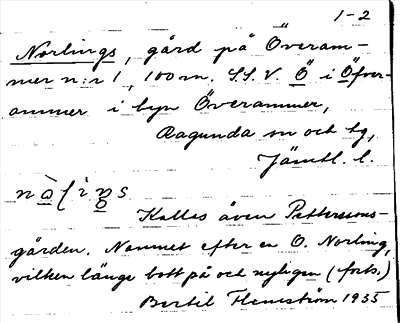 1-2
Norlings, gård på Överam-
mer n:r 1, 100 m. S.S.V. Ö i Öfver-
ammer i byn Överammer,
Ragunda sn och tg,
Jämtl. l.
Kallas även Petterssons-
gården. Namnet efter en O. Norling,
vilken länge bott på och nyligen (forts.)
Bertil Flemström 1935